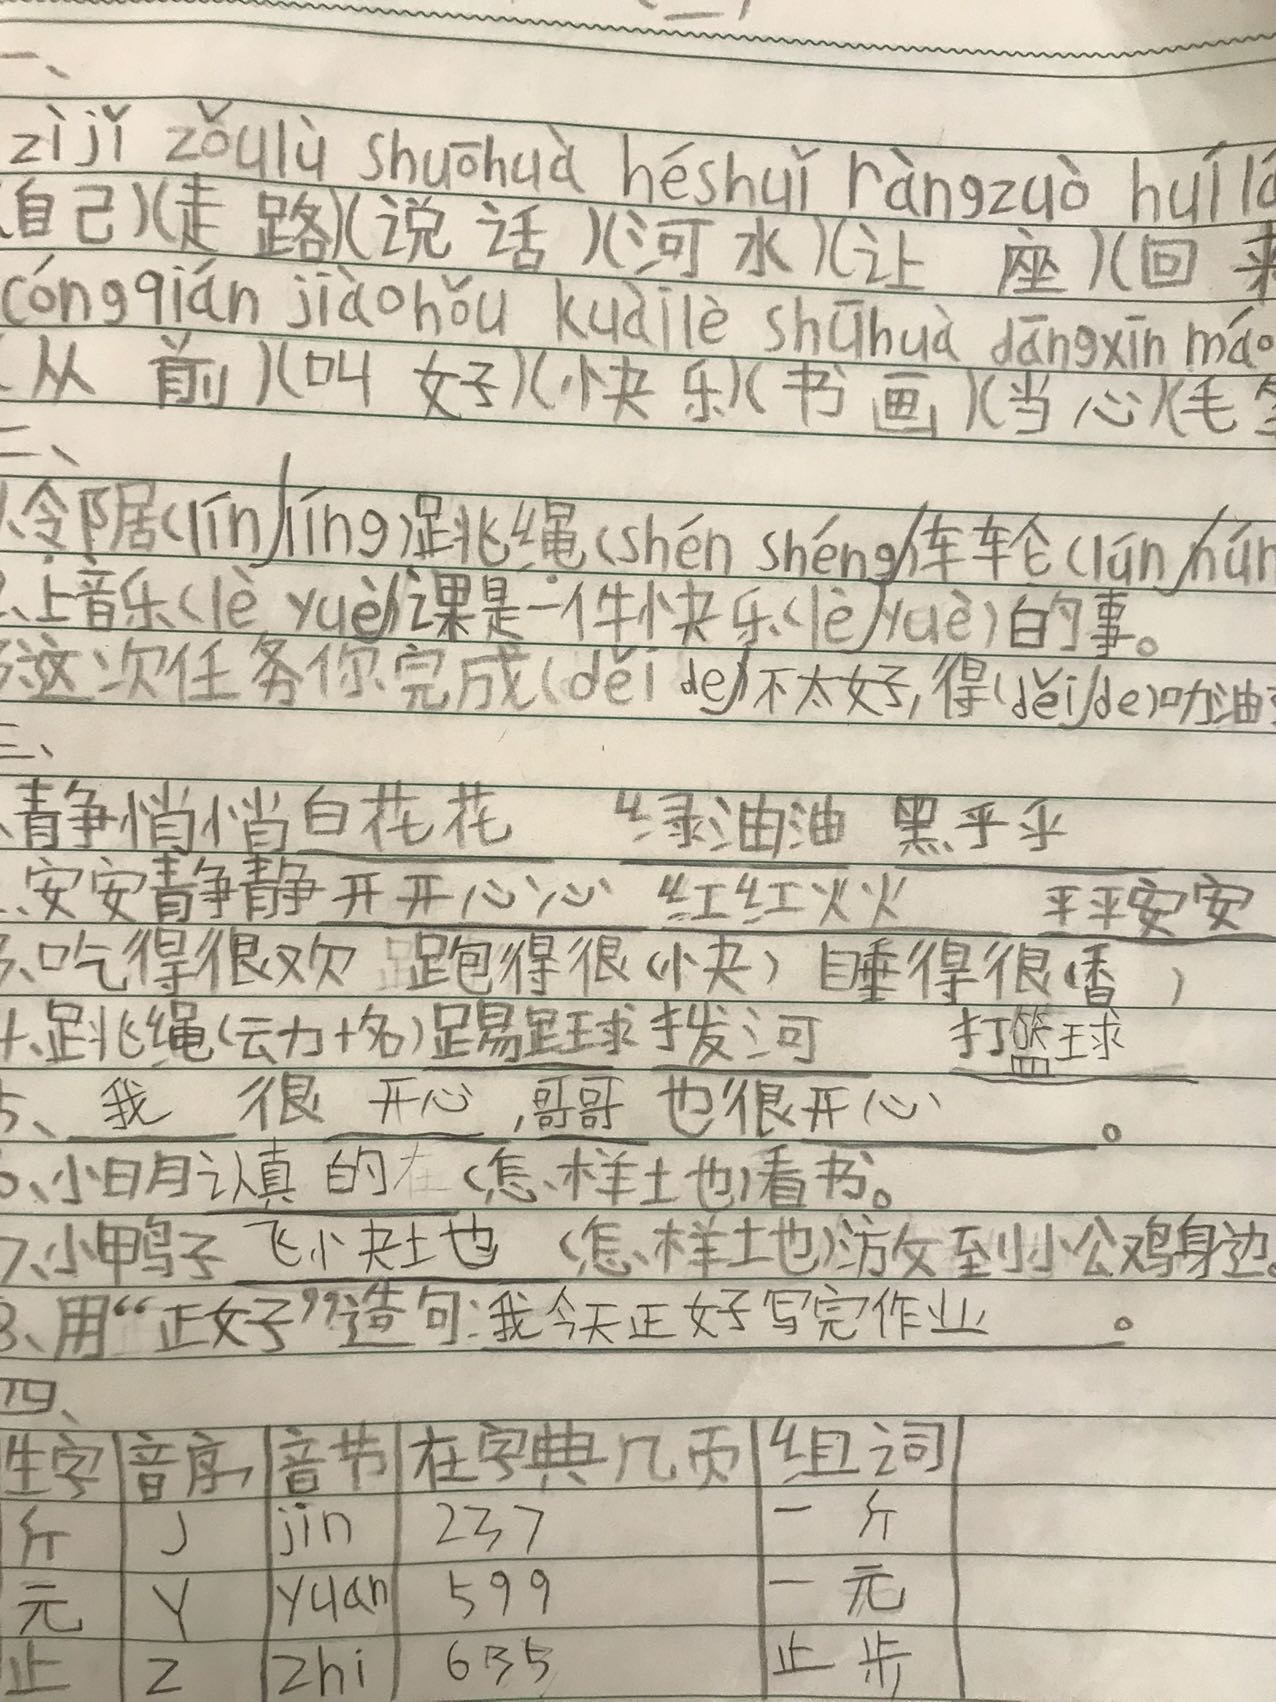 (二)
一、
zìjǐ zǒulù shuōhuà héshuǐ ràngzuò huílá
(自己)(走路)(说话)(河水)(让座)(回来
cóngqián jiàohǒu kuàilè shūhuà dāngxīn máo
(从前)(叫好)(快乐)(书画)(当心)(毛
二、
1、邻居(lín/líng)跳绳(shén shéng/)车轮(lún/nún
2、上音乐(lè yuè/)课是一件快乐(lè/yuè)的事。
3、这次任务你完成(děi de/)不太好,得(děi/de)加油
三、
1、静悄悄 白花花 绿油油 黑乎乎
2、安安静静 开开心心 红红火火 平平安安
3、吃得很欢 跑得很(快) 睡得很(香)
4、跳绳(动+名)踢足球 拨河 打篮球
5、我很开心,哥哥也很开心。
6、小明认真的(怎样地)看书。
7、小鸭子飞快地(怎样地)游到小公鸡身边。
8、用“正好”造句:我今天正好写完作业。
四、
生字 音序 音节 在字典几页 组词
斤 J jin 237 一斤
元 Y yuan 599 一元
止 Z zhi 635 止步